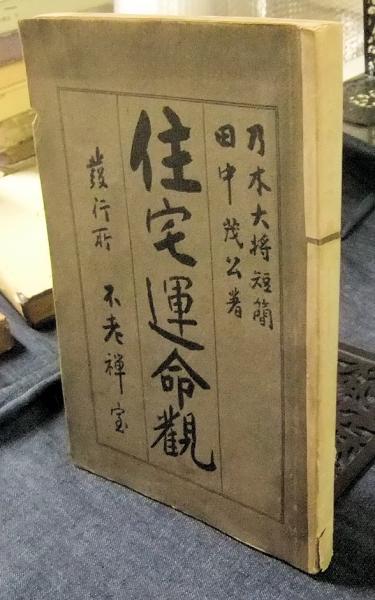 乃木大将短簡
田中茂公著
住宅運命觀
發行所 不老禅室